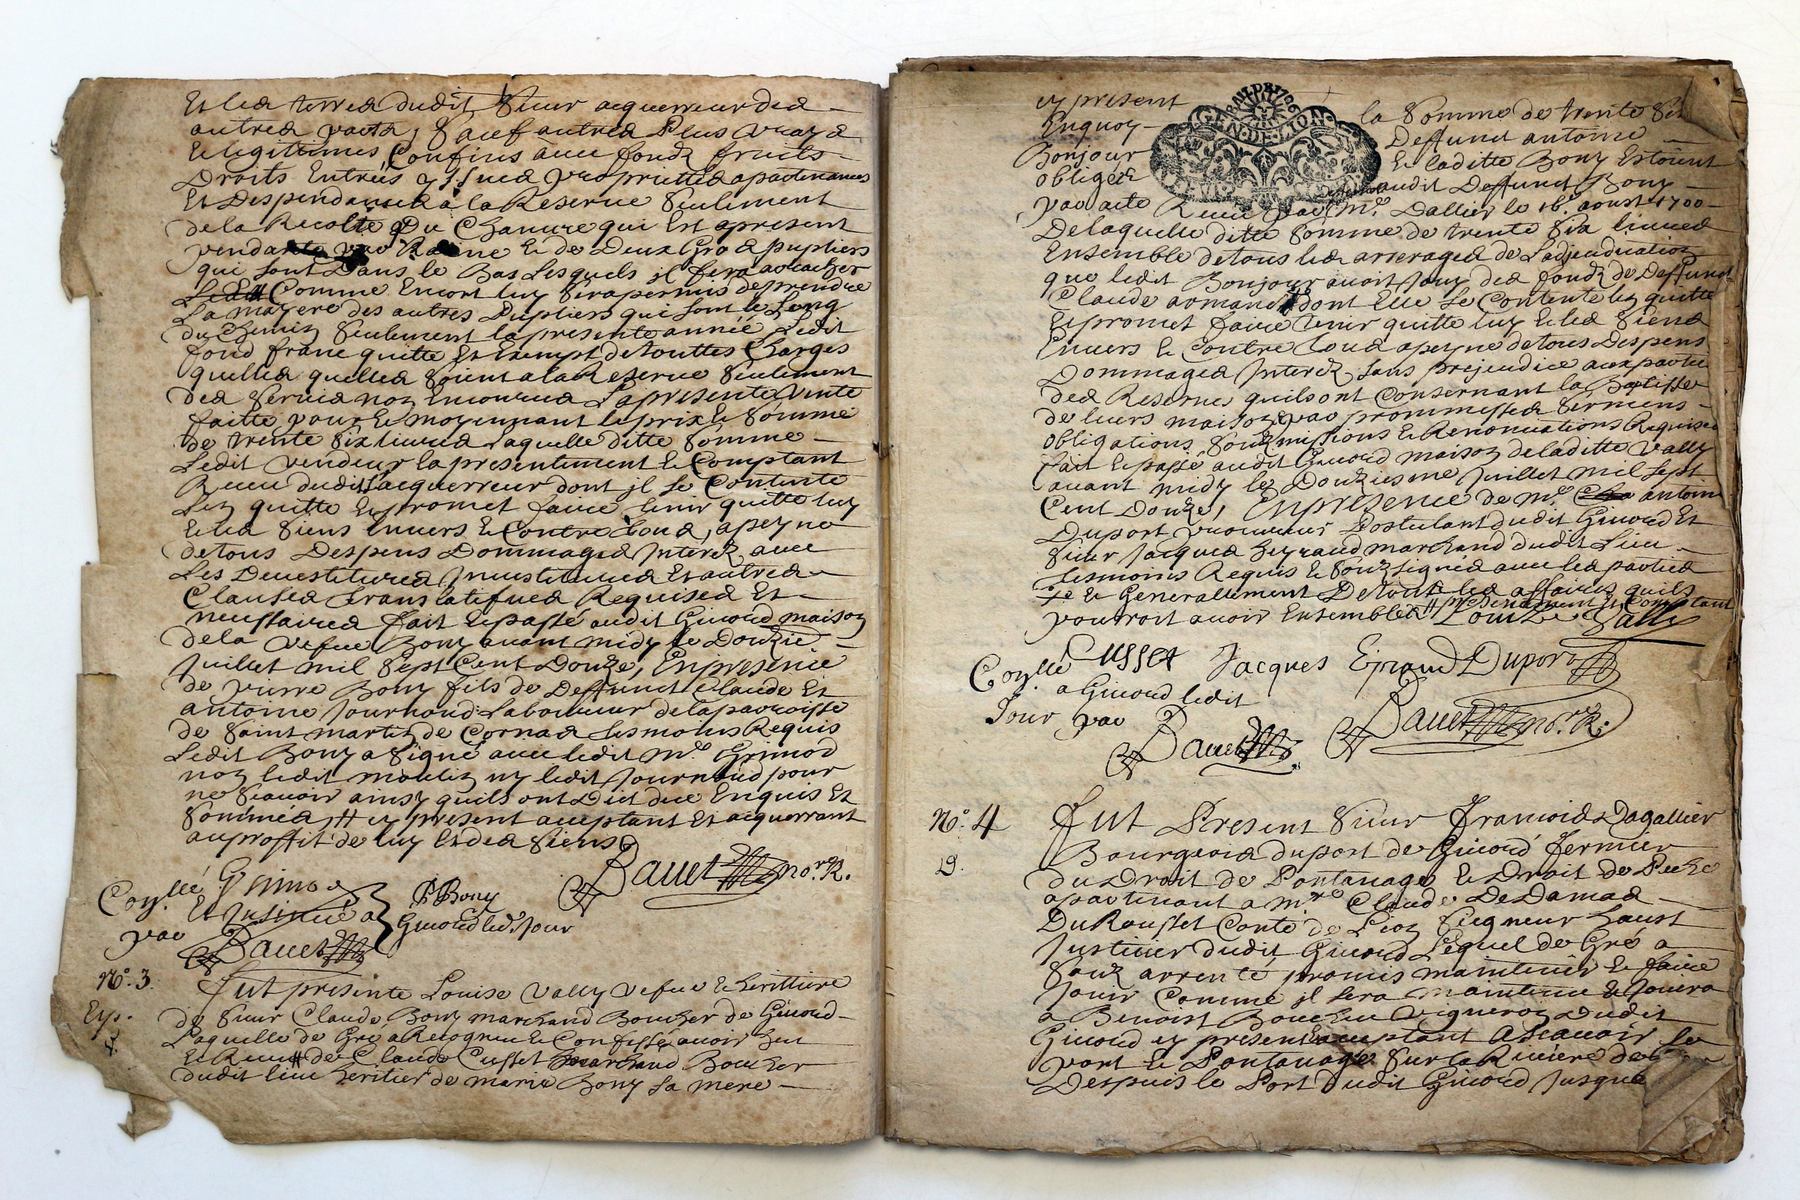 Et les terres dudit Sieur acquerreur des
autres parts, Sauf autres Plus vrays
Et legitimes Confins avec fondz fruits
Droits Entrées yssues proprietes apartenances
Et Despendances a la Reserve Seulement
de la Recolte Du Chanvre qui Est apresent
pendante par Racine Et de Deux Gros pupliers
qui sont Dans le Bas Lesquels jl fera arracher
Comme Encort luy Sera permis de prendre
La des autres Pupliers qui sont le Long
du Chemin Seulement la presente année Ledit
fond franc quitte Et Exempt de touttes Charges
quelles quelles Soient a la Reserve Seulement
des Servis non Encourus La presente Vente
faitte pour Et moyennant le prix Et Somme
de trente Six livres Laquelle ditte Somme
Ledit vendeur la presentement Et Comptant
Receu dudit Sr acquerreur dont jl se Contente
Len quitte Et promet faire tenir quitte luy
Et les Siens Envers Et Contre tous, a peyne
de tous Despens Dommages jnterez avec
Les Devestitures jnvestitures Et autres
Clauses translatifves Requises Et
necessaires fait Et passé audit Givord maison
de la Vefve Bony avant midy le Douzie
Juillet mil Sept Cent Douze, En presence
de pierre Bony fils de Deffunct Claude Et
antoine Journoud Laboureur de la parroisse
de Saint martin de Cornas tesmoins Requis
Ledit Bony a Signé avec ledit Mre Grimod
non ledit ny ledit Journoud pour
ne Scavoir ainsy quils ont Dict de ce Enquis Et
Sommés # cy present acceptant Et acquerrant
au proffit de luy Et des Siens
Grimod
P Bony
Bauet no.re R.
Con.llé Et Insinué a Givord led. Jour
par Bauet
N.º 3.
Fut presente Louise Vally vefve Et heritiere
de Sieur Claude Bony marchand Boucher de Givord
Laquelle de Gré a Recognu Et Confessé avoir heu
Et Receu # de Claude Cusset marchand Boucher
dudit lieu heritier de marie Bony sa mere
GEN.DE.LION
cy present la Somme de trente Six
Enquoy Deffunct antoine
Bonjour Et laditte Bony Estoient
obligés audit Deffunct Bony
par acte Receu par Me. Dallier le 16e. aoust 1700
De laquelle ditte Somme de trente Six livres
Ensemble de tous les arrerages de Ladjudication
que ledit Bonjour avoit des fondz de Deffunct
Claude armand dont Elle Se Contente Len quitte
Et promet faire tenir quitte luy Et les Siens
Envers Et Contre tous a peyne de tous Despens
Dommages jnterez Sans prejudice aux parties
des Reserves quils ont Consernant la Batisse
de leurs maisons par prommesses Sermens
obligations Soubzmissions Et Renonciations Requises
fait Et passé audit Givord maison de laditte Vally
avant midy le Douziesme Juillet mil Sept
Cent Douze, En presence de Me antoine
Duport procureur Postulant dudit Givord Et
Sieur Jacques Eyraud marchand dudit Lieu
tesmoins Requis Et Soubzsignés avec les parties
Et Generallement De tous les affaires quils
pourroit avoir Ensemble # presentement Et Comptant
Louize Vally
Cusset Jacques Eyraud Duport
Con.llé a Givord ledit
Jour par
Bauet Bauet no.re R.
N.º 4
Fut Present Sieur François Dagallier
Bourgeois du port de Givord fermier
du Droit de Pontanage Et Droit de Peche
apartenant a Mre Claude De Damas
Du Rousset Conte de Lion Seigneur haust
Justicier dudit Givord Lequel de Gré a
Soubz arrenté promis maintenir Et faire
Jouir Comme jl sera maintenu Et Jouira
a Benoist Boucheu vigneron dudit
Givord cy present acceptant a Scavoir le
port Et Pontanage Sur la Riviere de
Despuis le Port dudit Givord Jusque